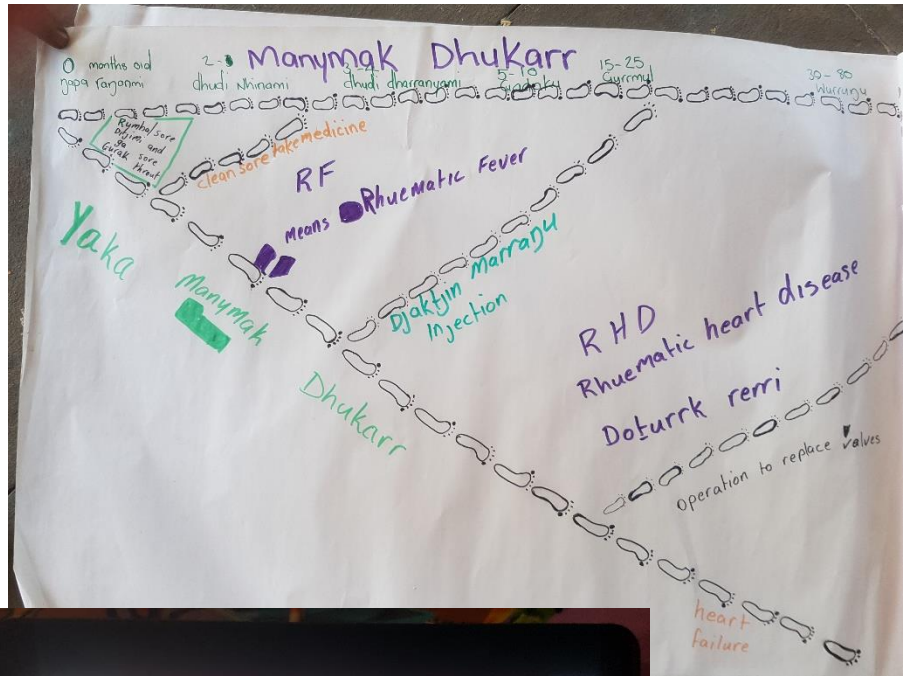 Manymak Dhukarr
0 months old
2-
15-25
30-80
dhudi Nhinami
dhudi dharranyami
5-10
Gurrmul
Wurranu
Rumbal sore
and
ga
Gurak sore
throat
clean sore take medicine
RF
Means Rhuematic Fever
Yaka
Manymak
Dhukarr
Djaktjin Marranu
Injection
RHD
Rhuematic heart disease
Doturrk rerri
Operation to replace Valves
heart
failure